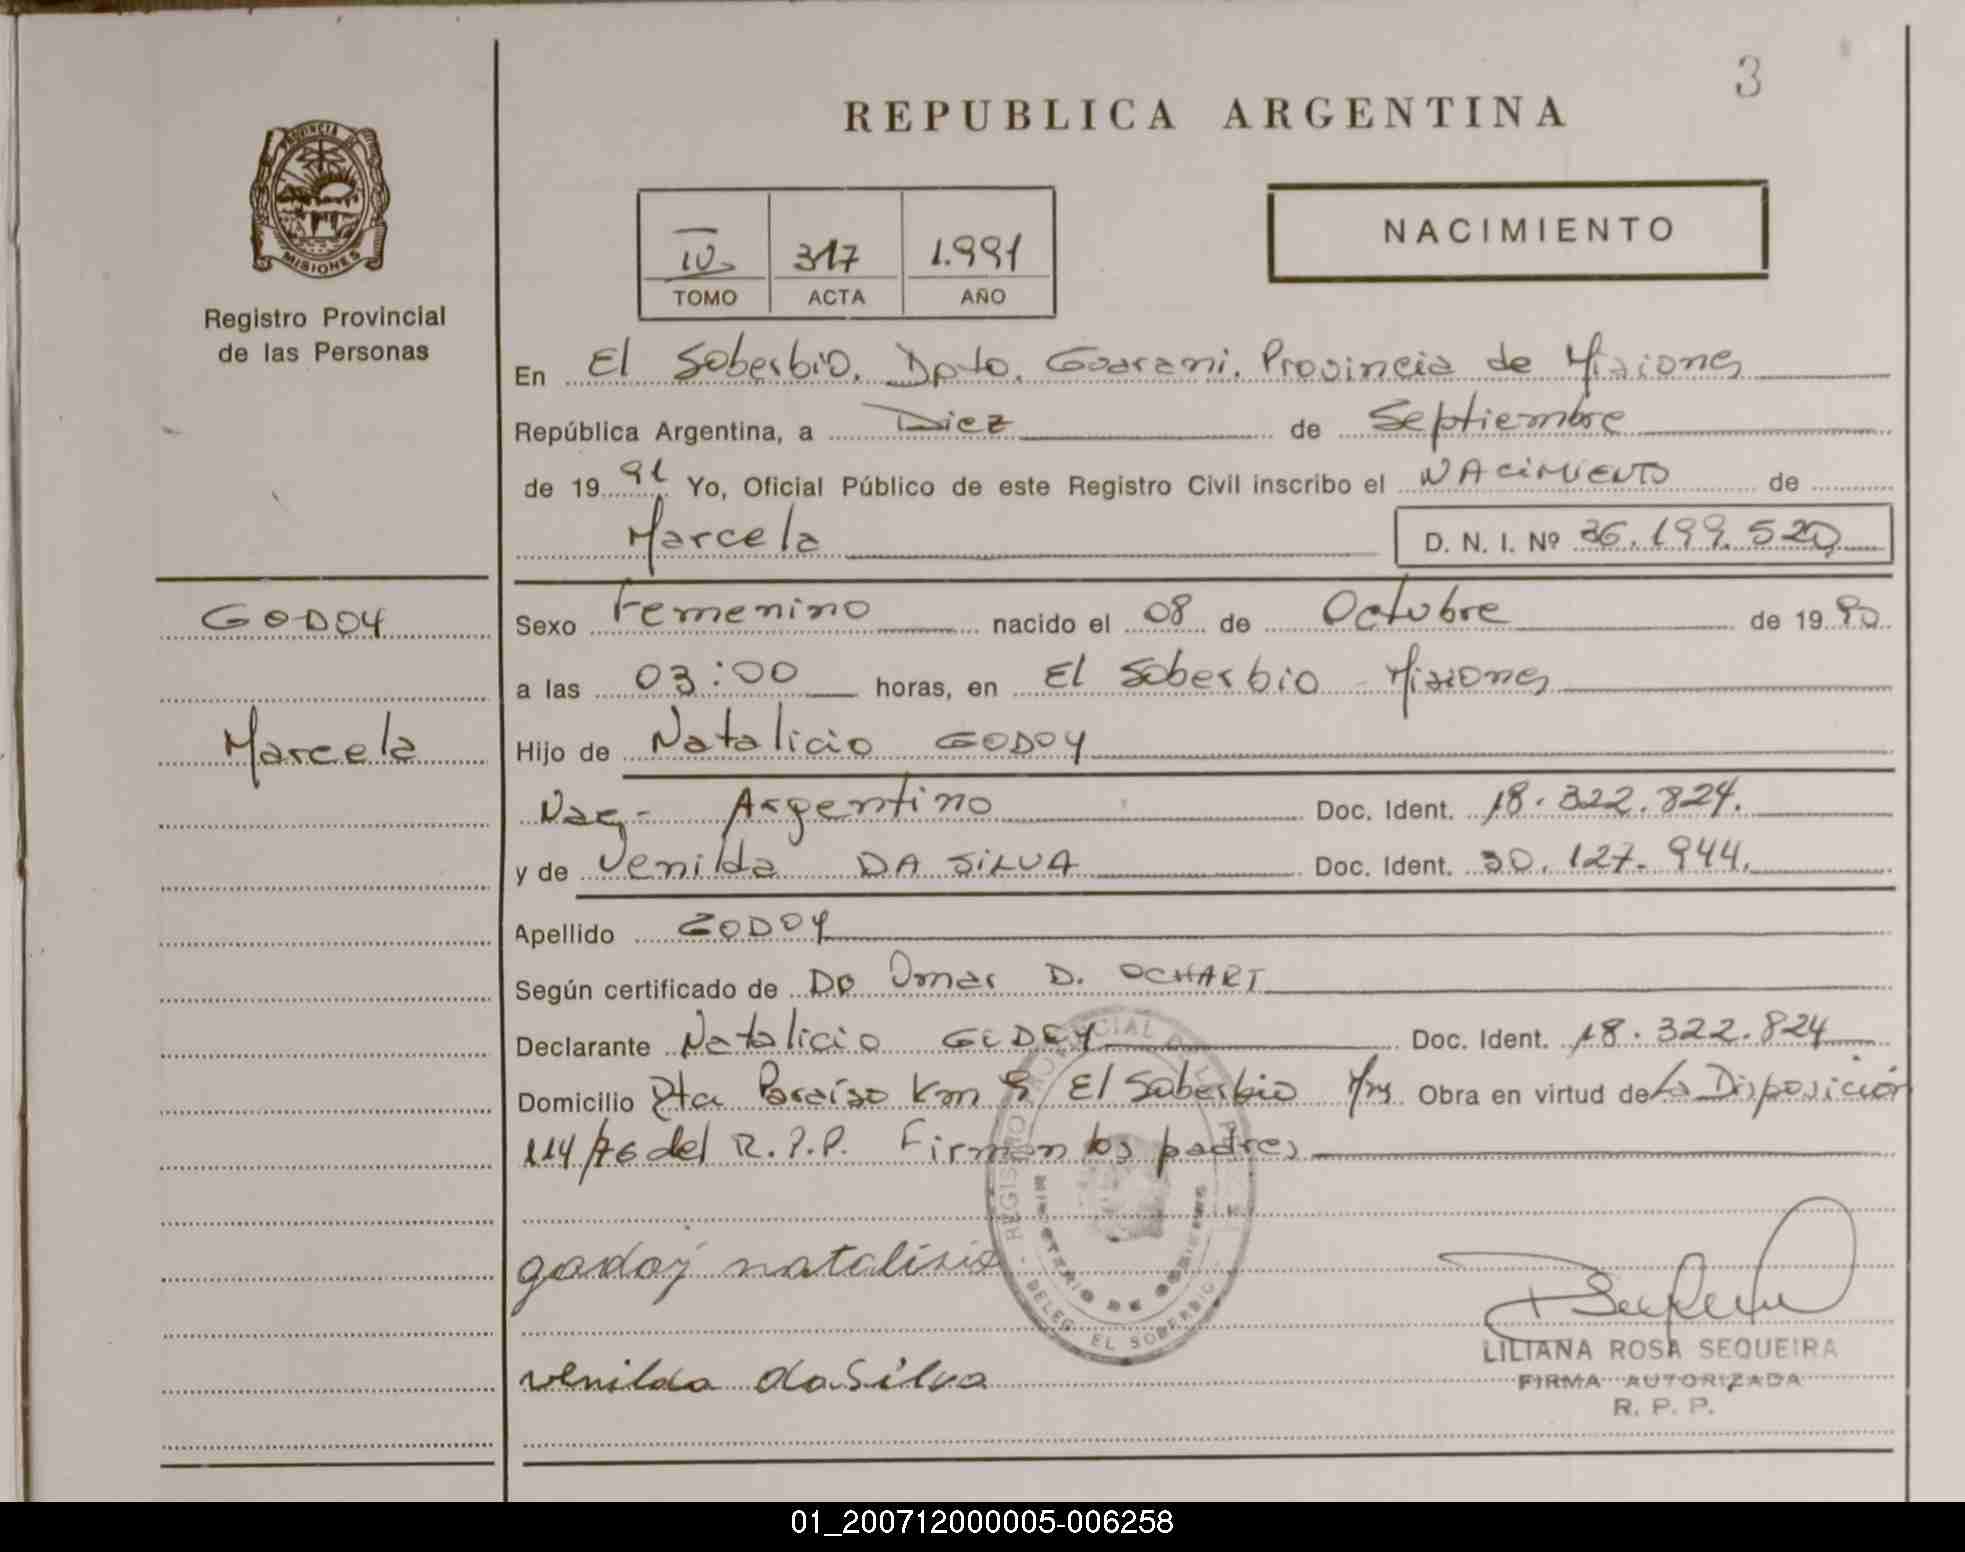 3
REPUBLICA ARGENTINA
PROVINCIA DE
MISIONES
Registro Provincial
de las Personas
IV 317 1.991
TOMO ACTA AÑO
NACIMIENTO
En El Soberbio. Dpto. Guarani. Provincia de Misiones
República Argentina, a Diez de Septiembre
de 19 91 Yo, Oficial Público de este Registro Civil inscribo el NACIMIENTO de
Marcela D. N. I. Nº 36.199.520
GODOY
Marcela
Sexo Femenino nacido el 08 de Octubre de 19 90
a las 03:00 horas, en El Soberbio - Misiones
Hijo de Natalicio GODOY
Nac- Argentino Doc. Ident. 18.322.824.
y de Venilda DA SILVA Doc. Ident. 30.127.944.
Apellido GODOY
Según certificado de Do Omar D. OCHART
Declarante Natalicio GODOY Doc. Ident. 18.322.824
Domicilio Pta Paraíso Km El Soberbio Mns Obra en virtud de La Disposición
114/76 del R.P.P. Firman los padres
godoy natalisio
venilda da Silva
REGISTRO PROVINCIAL DE LAS
MINISTERIO DE GOBIERNO
- DELEG. EL SOBERBIO -
LILIANA ROSA SEQUEIRA
FIRMA AUTORIZADA
R. P. P.
01_200712000005-006258